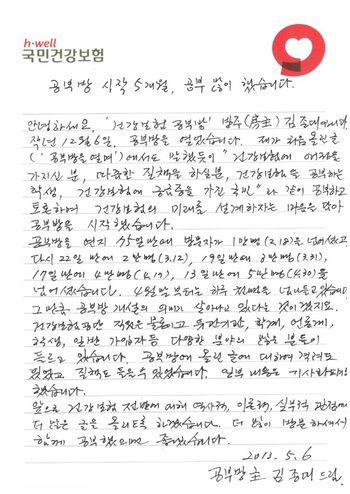 h·well
국민건강보험
공부방 시작 5개월, 공부 많이 했습니다.
안녕하세요, '건강보험 공부방' 방주(房主) 김종대입니다.
작년 12월 6일, 공부방을 열었습니다. 제가 처음 올린 글
('공부방을 열며')에서도 말했듯이 "건강보험에 애정을
가지신 분, 따끔한 질책을 하실 분, 건강보험을 공부하는
학생, 건강보험에 궁금증을 가진 국민"과 같이 공부하고
토론하며 건강보험의 미래를 설계하자는 마음을 담아
공부방을 시작했습니다.
공부방을 연지 75일만에 방문자가 1만명(2.18)을 넘어섰고,
다시 22일 만에 2만명(3.12), 19일만에 3만명(3.31),
17일 만에 4만명(4.17), 13일 만에 5만명(4.30)을
넘어섰습니다. 4월말부터는 하루 천명을 넘나들고 있습니다.
그만큼 공부방 개설의 의미가 살아나고 있다는 것이겠지요.
건강보험공단 직원은 물론이고 유관기관, 학계, 언론계,
학생, 일반 가입자 등 다양한 분야의 많은 분들이
들르고 있습니다. 공부방에 올린 글에 대하여 격려도
받았고 질책도 들을 수 있었습니다. 일부 내용은 기사화되기도
했습니다.
앞으로 건강보험 전반에 대해 역사적, 이론적, 실무적 관점에서
더 많은 글을 올리도록 하겠습니다. 더 많이 방문하셔서
함께 공부했으면 좋겠습니다.
2013. 5. 6
공부방主 김종대 드림